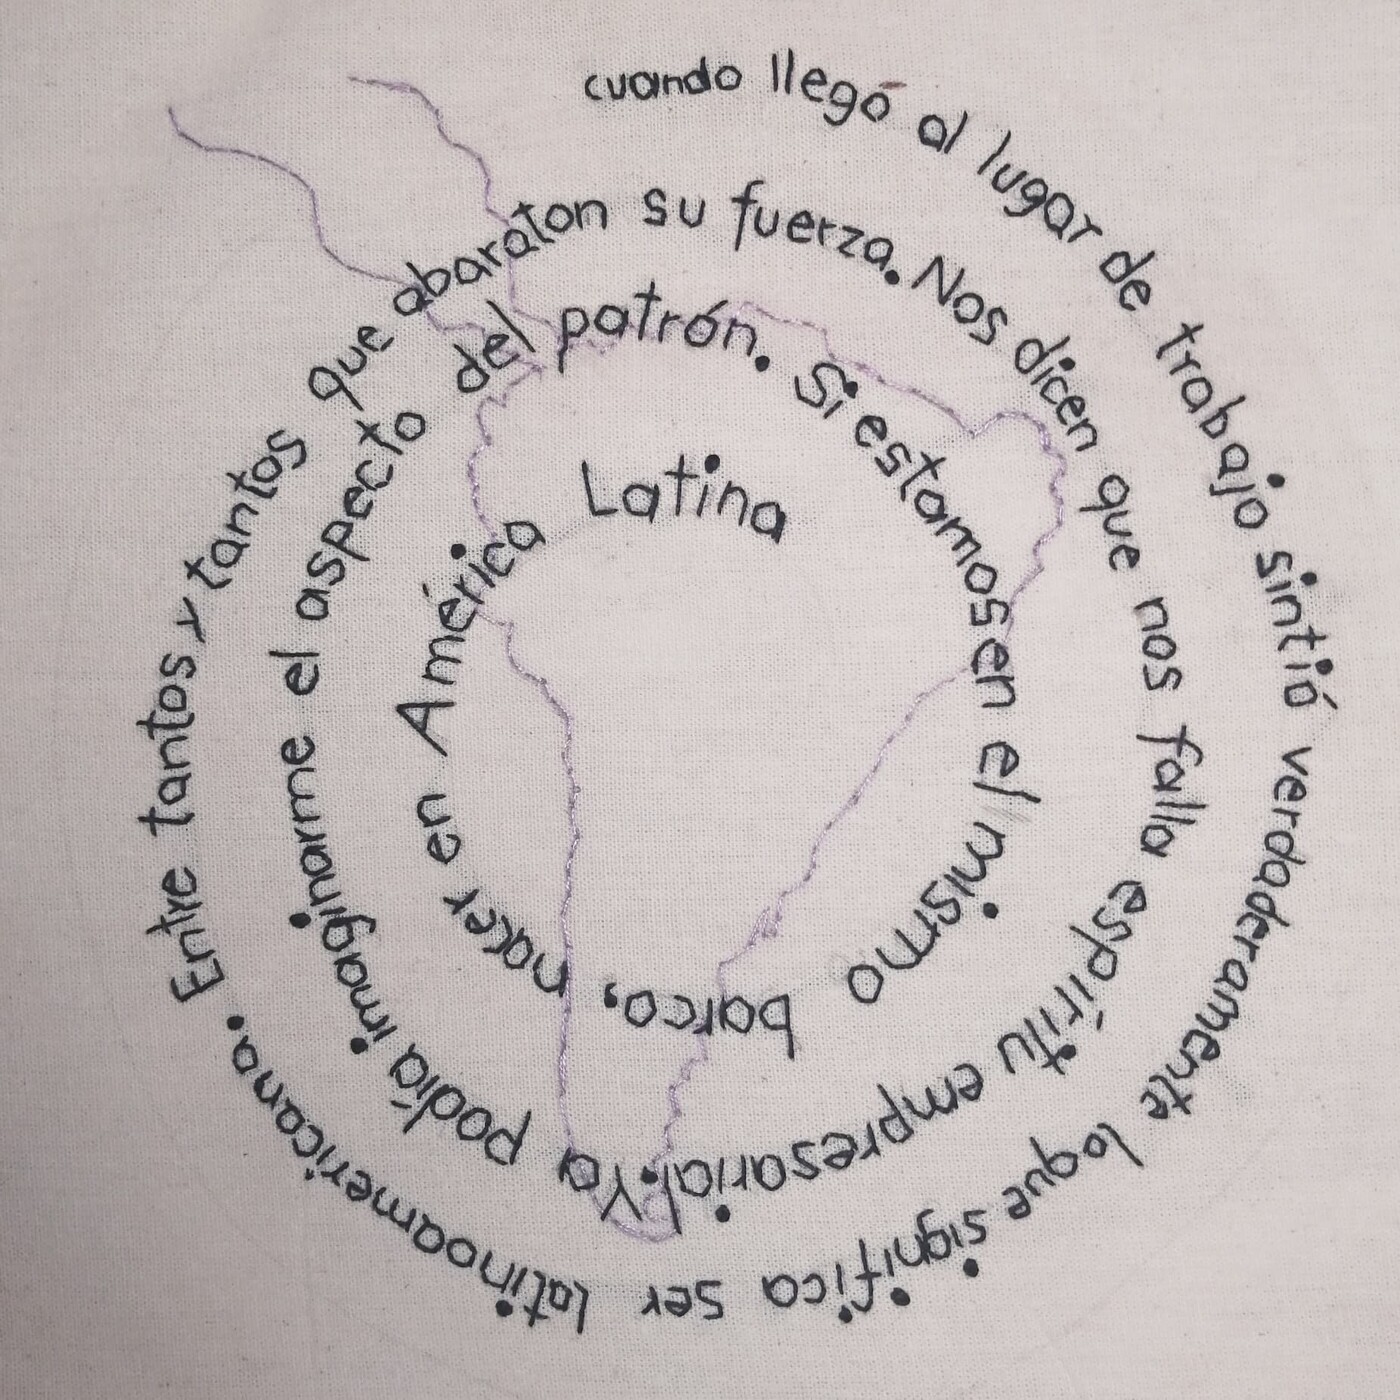 cuando llegó al lugar de trabajo sintió verdaderamente lo que significa ser latinoamericana. Entre tantos y tantos que abaratan su fuerza. Nos dicen que nos falla espíritu empresarial. Ya podía imaginarme el aspecto del patrón. Si estamos en el mismo barco, nacer en América Latina